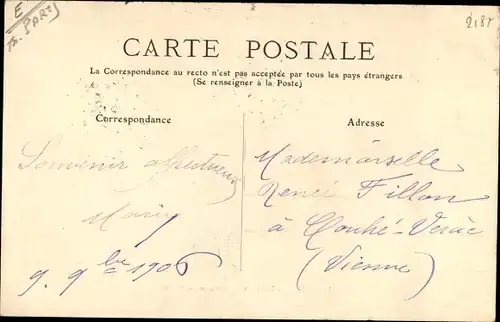 E
PARIS
2187
CARTE POSTALE
La Correspondance au recto n'est pas acceptée par tous les pays étrangers
(Se renseigner à la Poste)
Correspondance
Souvenir affectueux
9. 9bre 1906
Adresse
Mademoiselle
Renée Fillon
à Couhé-Vérac
(Vienne)